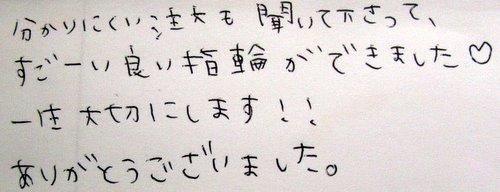 分かりにくい注文も聞いて下さって、
すごーい良い指輪ができました♡
一生大切にします！！
ありがとうございました。